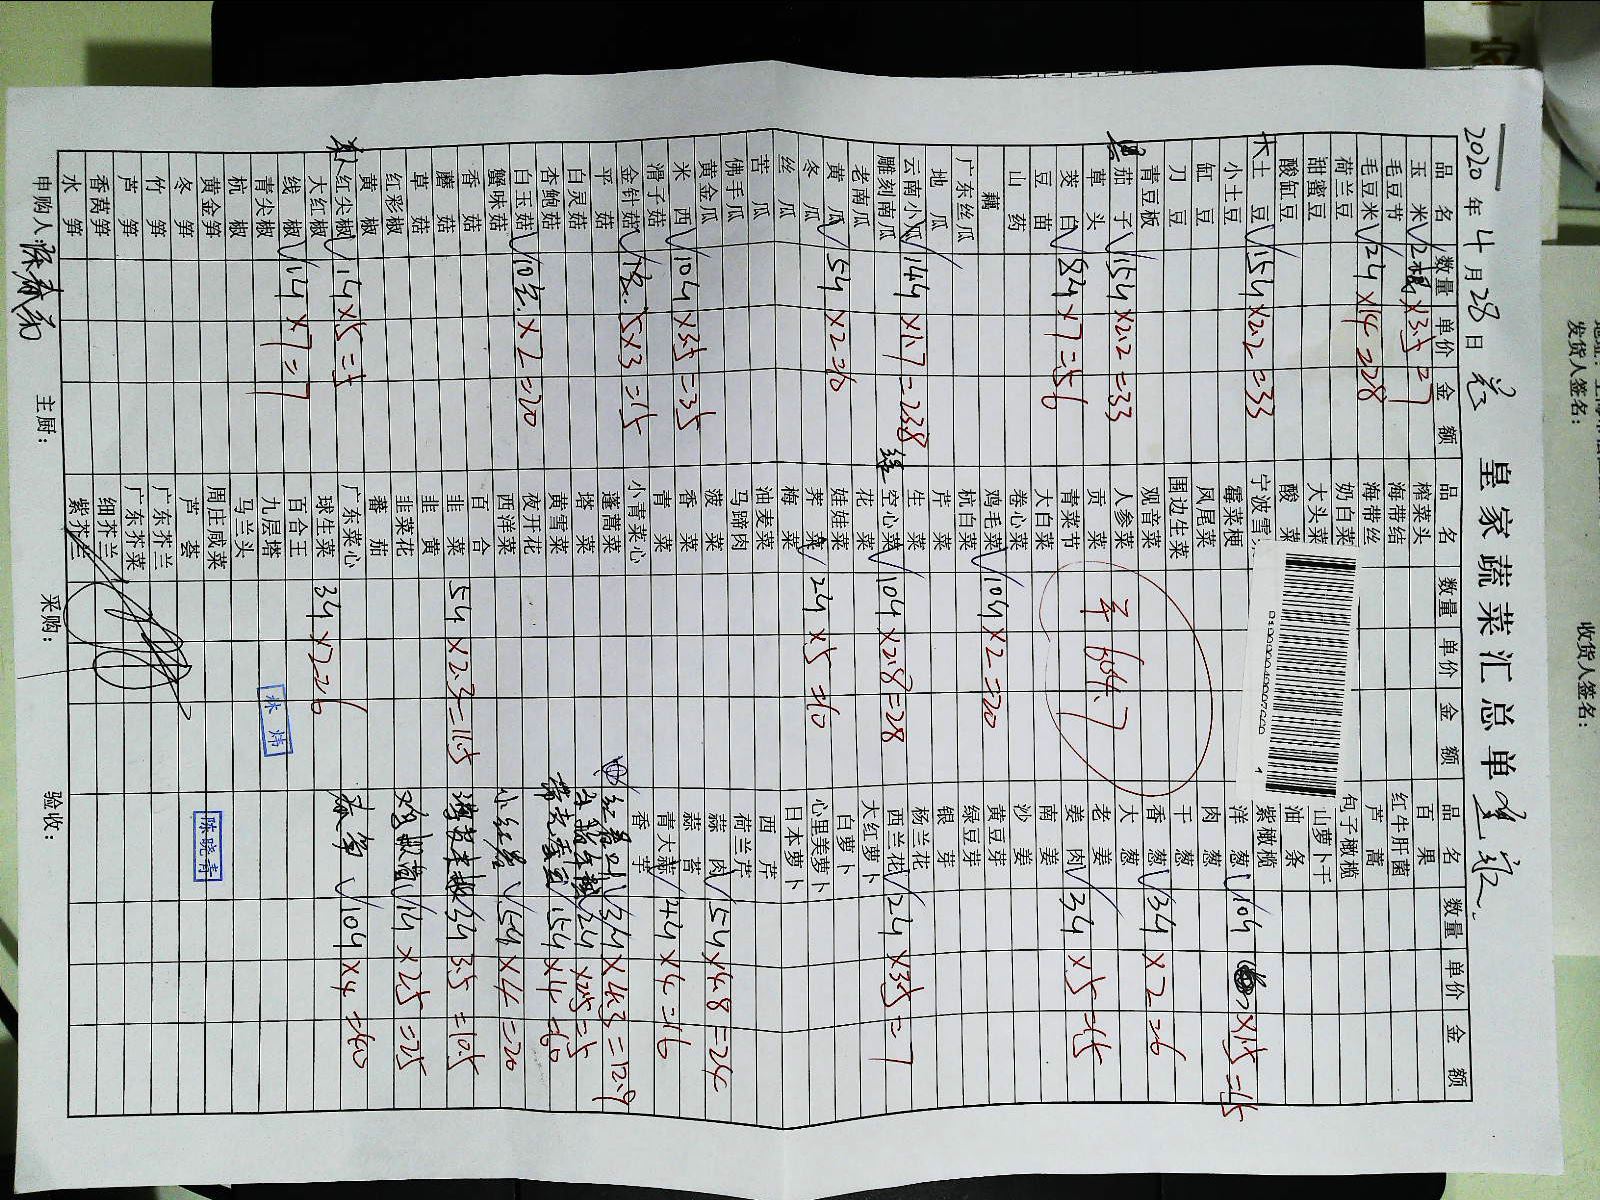 2020年4月28日
皇家蔬菜汇总单
品名 数量 单价 金额 品名 数量 单价 金额 品名 数量 单价 金额
玉米 ×3.5=7 榨菜头 百果
毛豆节 海带结 红牛肝菌
毛豆米 2斤×14=28 海带丝 芦蒿
荷兰豆 奶白菜 句子橄榄
甜蜜豆 大头菜 山萝卜干
酸缸豆 酸菜 油条
大土豆 15斤×2.2=33 宁波雪 紫橄榄
小土豆 霉菜梗 洋葱 10斤×1.5=15
缸豆 凤尾菜 肉葱
刀豆 围边生菜 干葱
青豆板 观音菜 香葱 3斤×2=6
茄子 15斤×2.2=33 人参菜 大葱
草头 贡菜 老姜
茭白 8斤×7=56 青菜节 姜肉 3斤×5=15
豆苗 大白菜 南姜
山药 卷心菜 沙姜
藕 鸡毛菜 10斤×2=20 黄豆芽
广东丝瓜 杭白菜 绿豆芽
地瓜 芹菜 银芽
云南小瓜 14斤×1.7=23.8 生菜 杨兰花
雕刻南瓜 空心菜 10斤×2.8=28 西兰花 2斤×3.5=7
老南瓜 花菜 大红萝卜
黄瓜 5斤×2=10 娃娃菜 白萝卜
冬瓜 荠菜 2斤×5=10 心里美萝卜
丝瓜 梅菜 日本萝卜
苦瓜 油麦菜 西芹
佛手瓜 马蹄肉 荷兰芹
黄金瓜 菠菜 蒜肉 5斤×4.8=24
米西 10斤×3.5=35 香菜 蒜苔
滑子菇 青菜 青大蒜 4斤×4=16
金针菇 5×3=15 小青菜心 香芋
平菇 蓬蒿菜 3斤×4.3=12.9
白灵菇 塔菜 2斤×2.5=5
杏鲍菇 黄雪菜 15斤×4=60
白玉菇 10包×2=20 夜开花
蟹味菇 西洋菜 小红 5斤×4=20
香菇 百合
蘑菇 韭菜 5斤×2.3=11.5 3斤 3.5=10.5
草菇 韭黄
红彩椒 韭菜花 1斤×25=25
黄椒 蕃茄
红尖椒 1斤×5=5 广东菜心 10斤×4=40
大红椒 球生菜 3斤×2=6
线椒 1斤×7=7 百合王
青尖椒 九层塔
杭椒 马兰头
黄金笋 周庄咸菜
冬笋 芦荟
竹笋 广东芥兰
芦笋 广东芥菜
香莴笋 细芥兰
水笋 紫芥兰
604.7
林炜
陈晓青
申购人: 主厨: 采购: 验收:
发货人签名:
收货人签名: